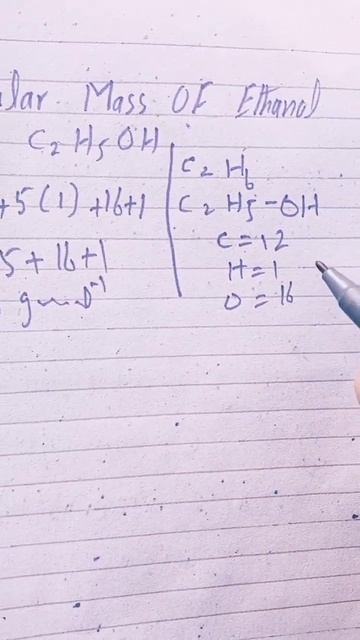 lar Mass OF Ethanol
C₂H₅OH
+5(1)+16+1
5+16+1
gmol⁻¹
C₂H₆
C₂H₅-OH
C=12
H=1
O=16